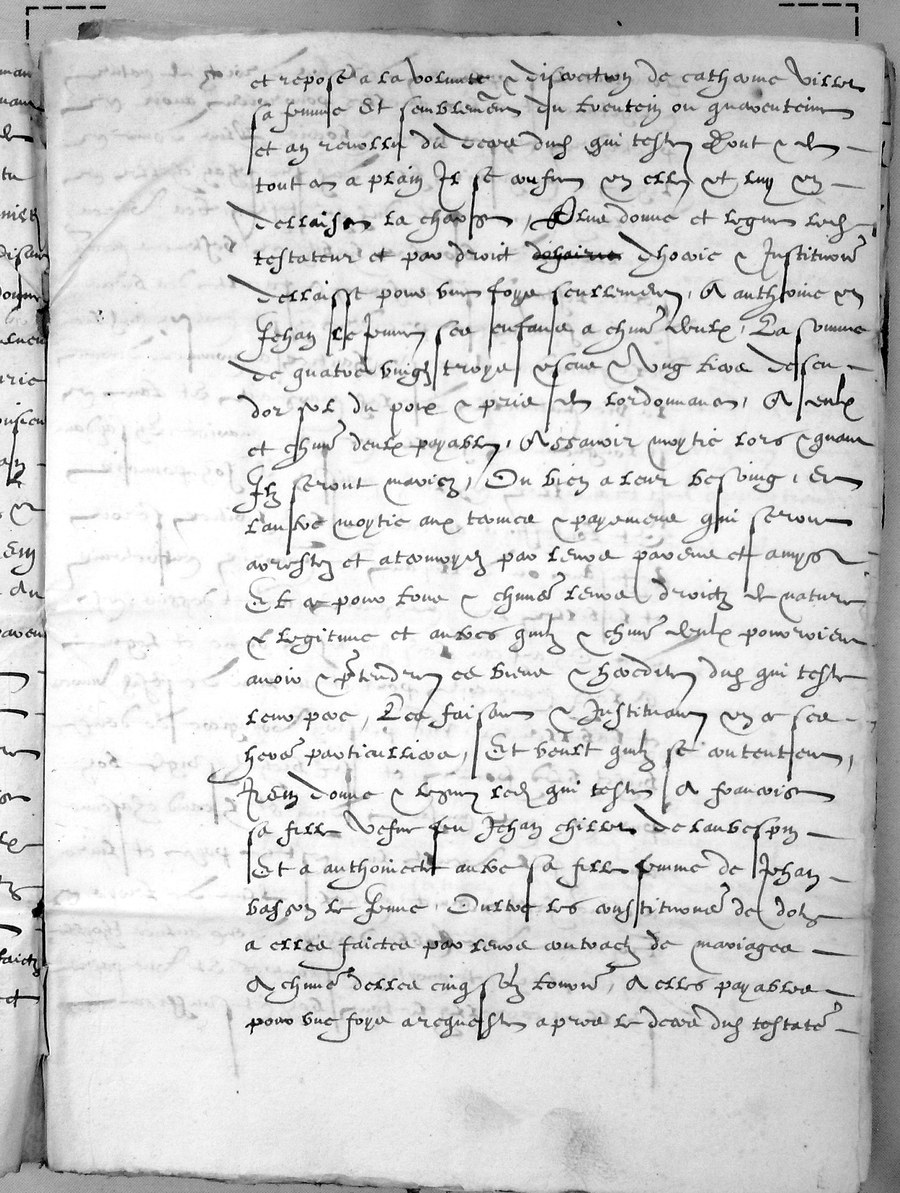 et repose a la volunte & discretion de catherine viller
sa femme Et semblement du trentein ou quarentein
et an revollu du deces dud qui teste Dont & du
tout en a plain Il se confie en elle et luy en
dellaisse la charge, Plus donne et legue led
testateur et par droit dhoirie & Institution
dellaisse pour une foys seullement, A anthoine et
Jehan le jeune ses enfans a chun deulx, La somme
de quatre vingtz troys escus & ung tiers descu
dor sol du poix & pris de lordonnance, A eulx
et chun deulx payable, Assavoir moytie lors & quant
Ilz seront mariez, Ou bien a leur besoing, et
lautre moytie aux termes & payemens qui seront
arrestez et atermoyez par leurs parens et amys
Et ce pour tous & chuns leurs droictz de nature
& legitime et autres quilz & chun deulx pourroient
avoir & prtendre es biens & heredite dud qui teste
leur pere, Les faisant & Instituant en ce ses
hers particulliers, Et veult quilz se contentent,
Item donne & legue led qui teste A francoise
sa fille vefve feu Jehan chiller de laubespin
Et a anthoinette autre sa fille femme de Jehan
basson le jeune, Oultre les constitutions de dotz
a elles faictes par leurs contractz de mariages
A chune delles cinq solz tournois, A elles payables
pour une foys a requeste apres le deces dud testateur